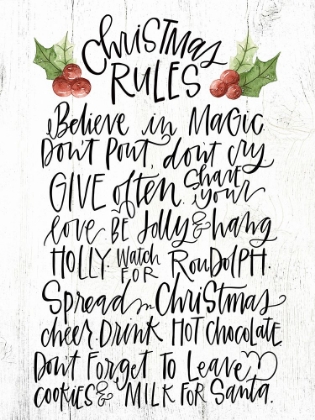 Christmas
RULES
Believe in MaGic
Don't Pout, don't cry
GIVE often Share your
love BE Jolly & hang
HOLLY Watch FOR RouDolPH.
Spread Christmas
cheer. Drink HOT Chocolate
Don't Forget To Leave
COOKIES & MILK FOR Santa.